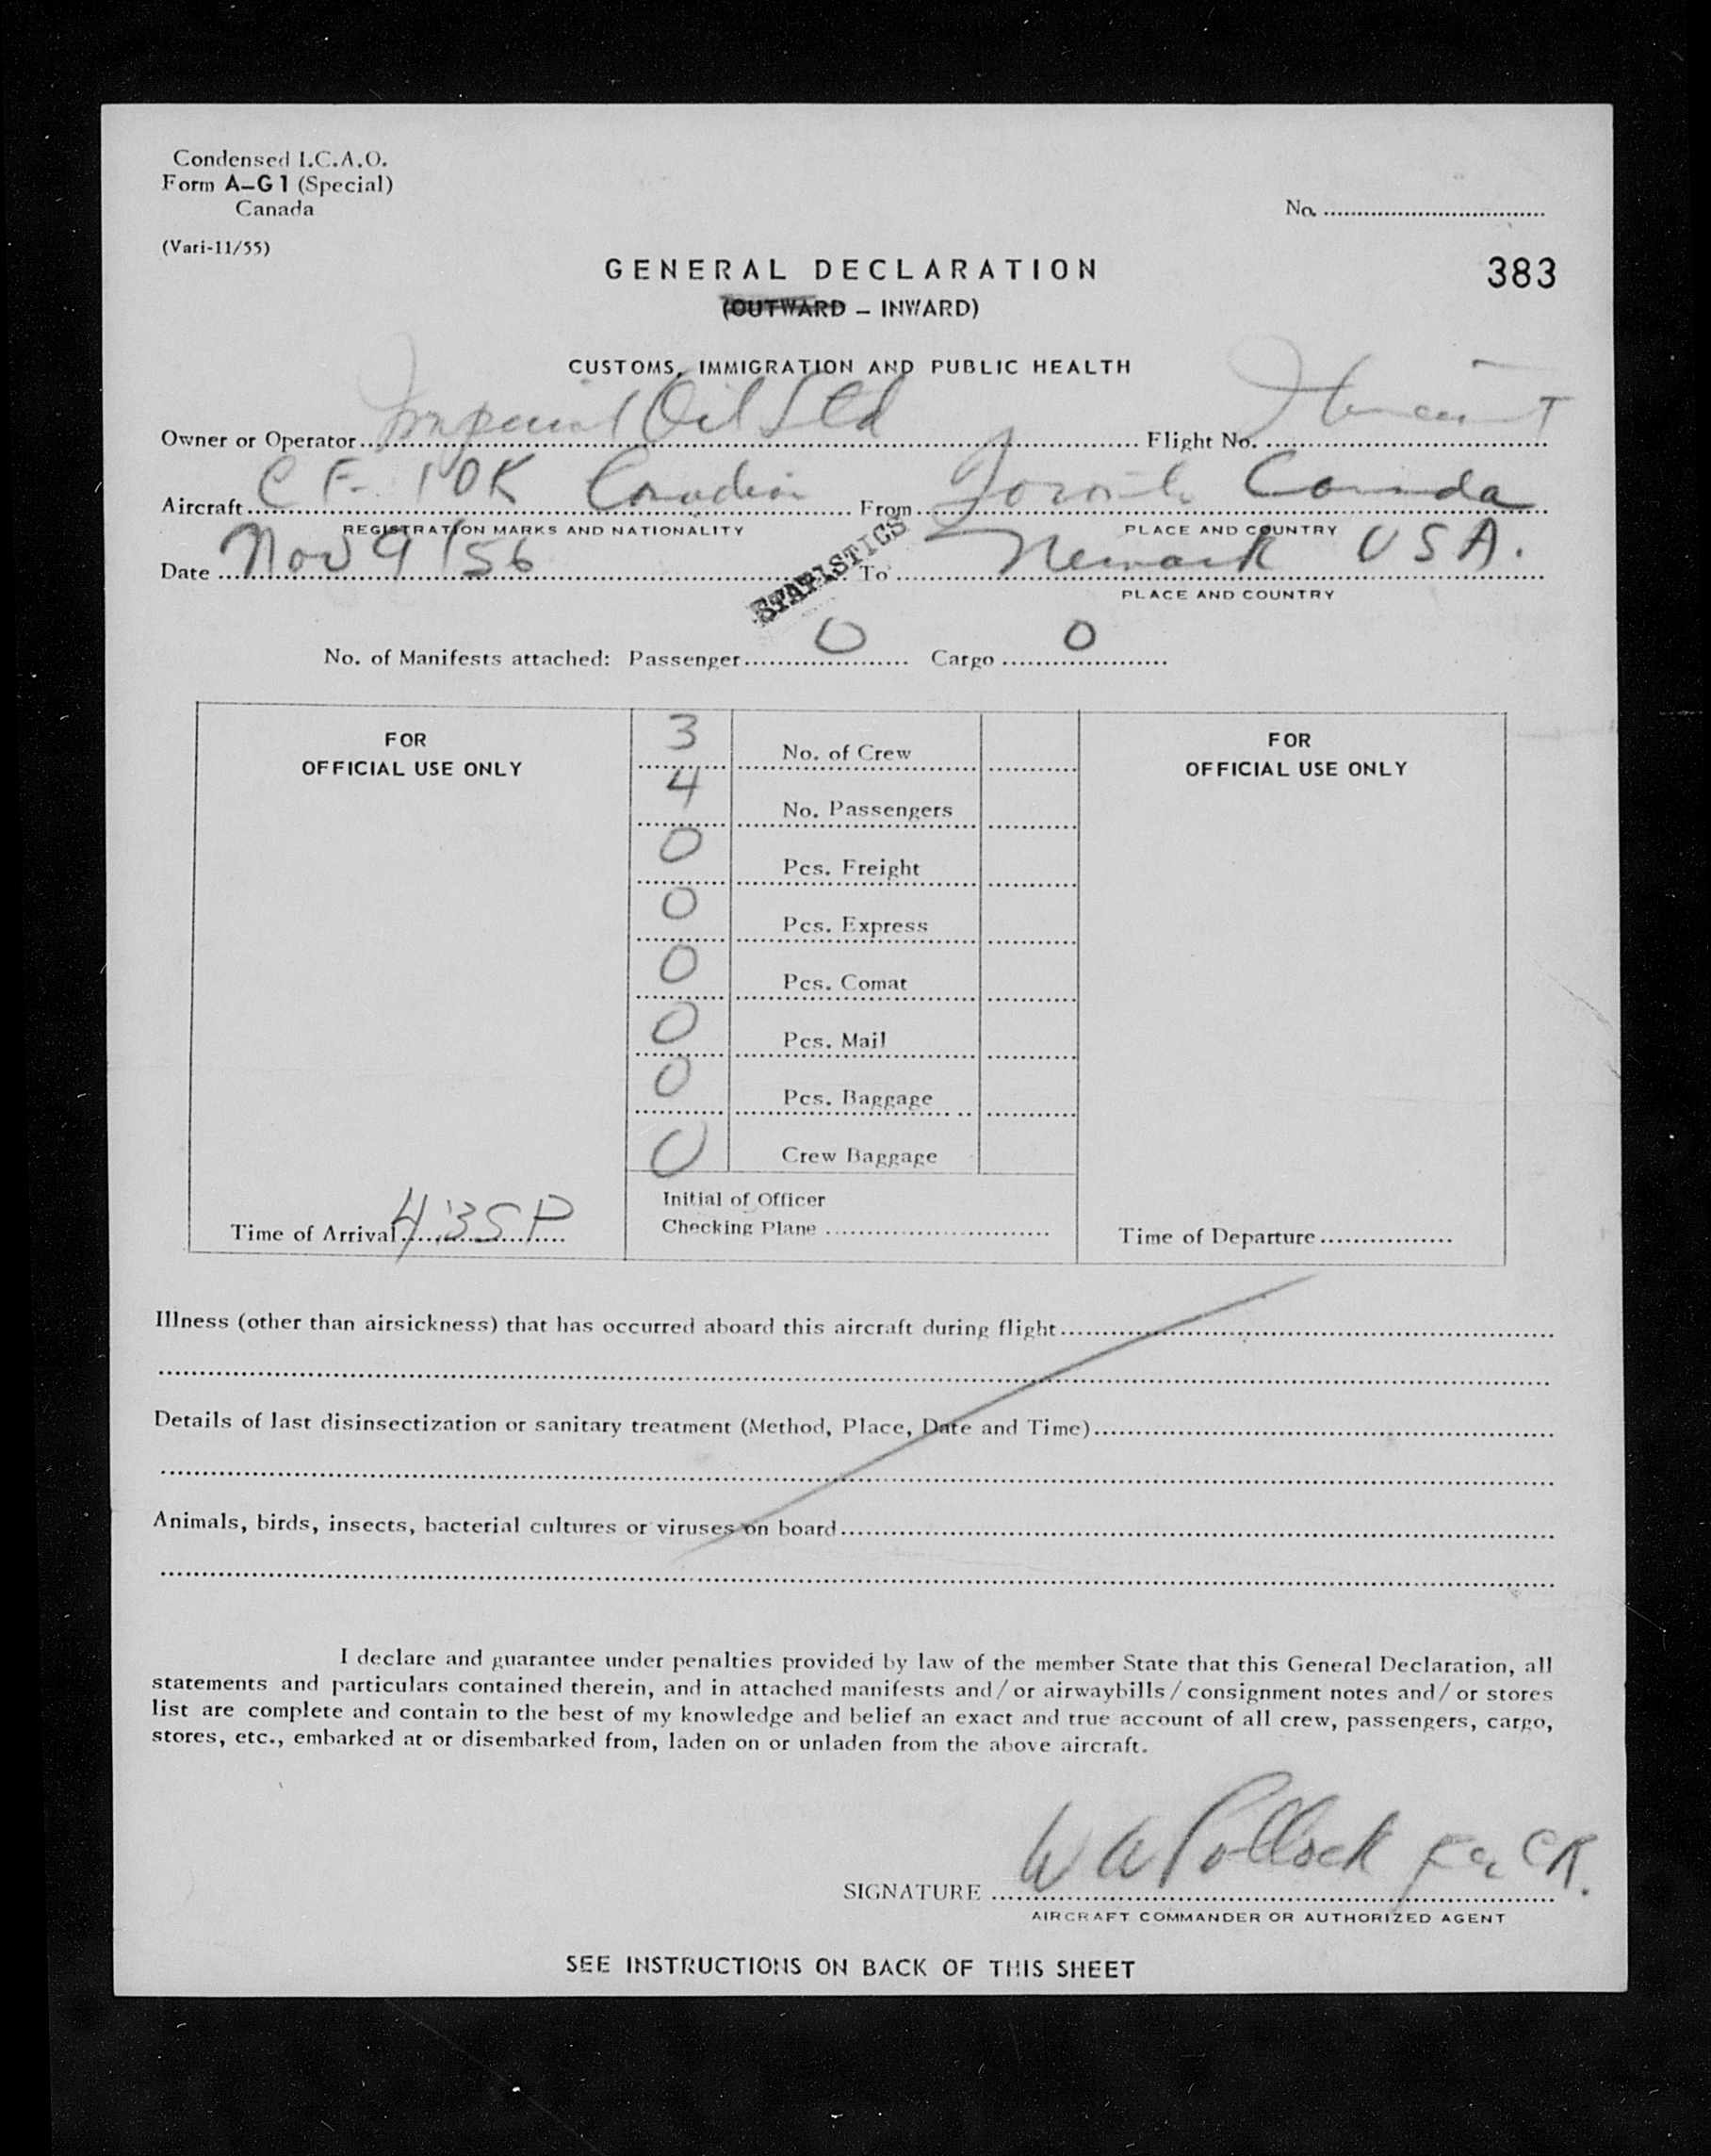 Condensed I.C.A.O.
Form A-G1 (Special)
Canada
No. ..........
(Vari-11/55)
GENERAL DECLARATION
383
(OUTWARD - INWARD)
CUSTOMS, IMMIGRATION AND PUBLIC HEALTH
Owner or Operator Imperial Oil Ltd Flight No.
Aircraft CF-IOK Canadian From Toronto Canada
REGISTRATION MARKS AND NATIONALITY PLACE AND COUNTRY
Date Nov 9/56 To Newark USA.
STATISTICS
PLACE AND COUNTRY
No. of Manifests attached: Passenger 0 Cargo 0
FOR OFFICIAL USE ONLY
3 No. of Crew
4 No. Passengers
0 Pcs. Freight
0 Pcs. Express
0 Pcs. Comat
0 Pcs. Mail
0 Pcs. Baggage
0 Crew Baggage
FOR OFFICIAL USE ONLY
Time of Arrival 4:35P
Initial of Officer
Checking Plane ..........
Time of Departure ..........
Illness (other than airsickness) that has occurred aboard this aircraft during flight
Details of last disinsectization or sanitary treatment (Method, Place, Date and Time)
Animals, birds, insects, bacterial cultures or viruses on board
I declare and guarantee under penalties provided by law of the member State that this General Declaration, all
statements and particulars contained therein, and in attached manifests and/or airwaybills/consignment notes and/or stores
list are complete and contain to the best of my knowledge and belief an exact and true account of all crew, passengers, cargo,
stores, etc., embarked at or disembarked from, laden on or unladen from the above aircraft.
SIGNATURE W A Pollock
AIRCRAFT COMMANDER OR AUTHORIZED AGENT
SEE INSTRUCTIONS ON BACK OF THIS SHEET